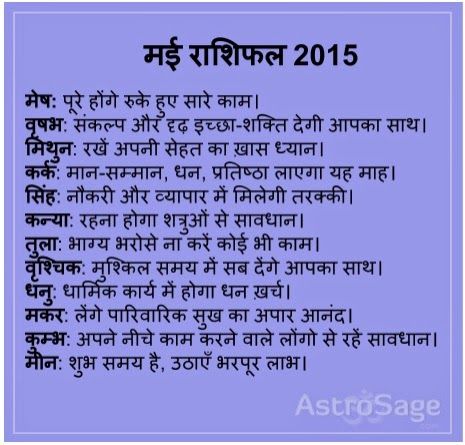 मई राशिफल 2015
मेष: पूरे होंगे रुके हुए सारे काम।
वृषभ: संकल्प और दृढ़ इच्छा-शक्ति देगी आपका साथ।
मिथुन: रखें अपनी सेहत का ख़ास ध्यान।
कर्क: मान-सम्मान, धन, प्रतिष्ठा लाएगा यह माह।
सिंह: नौकरी और व्यापार में मिलेगी तरक्की।
कन्या: रहना होगा शत्रुओं से सावधान।
तुला: भाग्य भरोसे ना करें कोई भी काम।
वृश्चिक: मुश्किल समय में सब देंगे आपका साथ।
धनु: धार्मिक कार्य में होगा धन ख़र्च।
मकर: लेंगे पारिवारिक सुख का अपार आनंद।
कुम्भ: अपने नीचे काम करने वाले लोंगो से रहें सावधान।
मीन: शुभ समय है, उठाएँ भरपूर लाभ।
AstroSage
.com